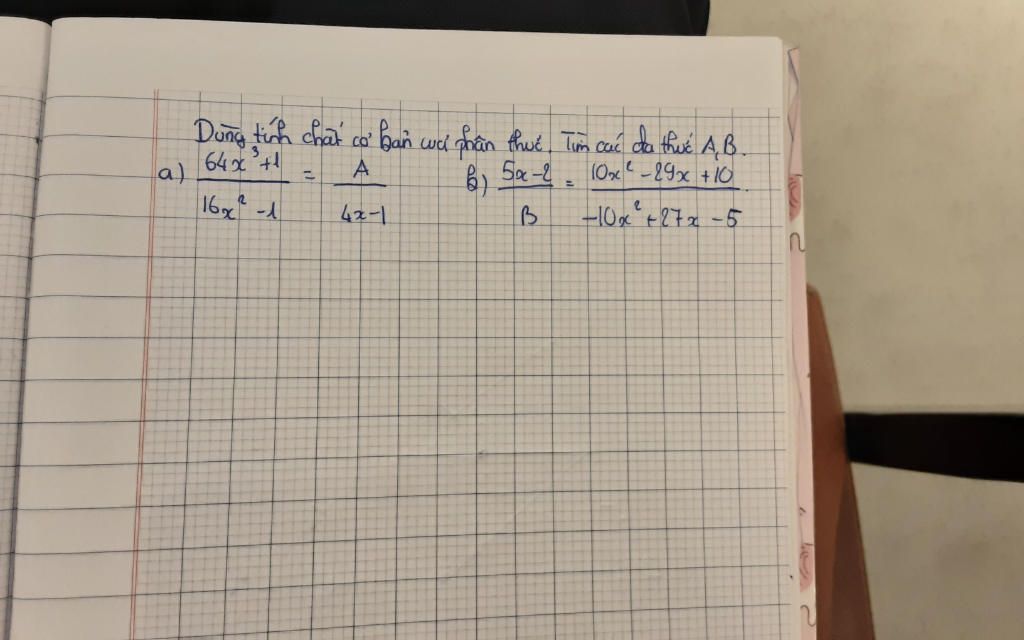 Dùng tính chất cơ bản của phân thức. Tìm các đa thức A, B.
a) (64x³+1)/(16x² - 1) = A/(4x-1) b) (5x-2)/B = (10x² - 29x + 10)/(-10x² + 27x - 5).